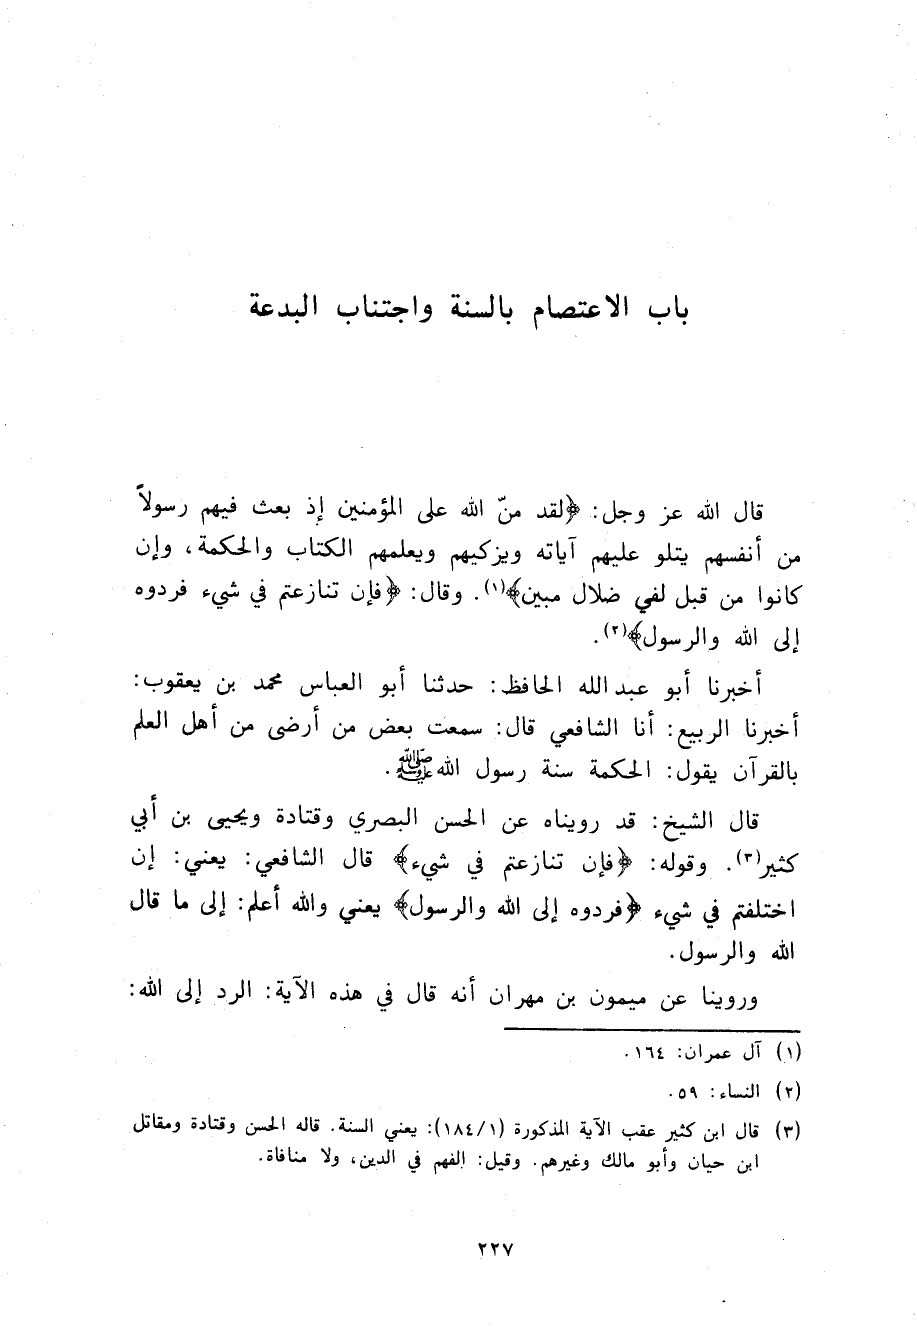 باب الاعتصام بالسنة واجتناب البدعة
قال الله عز وجل: ﴿لقد منّ الله على المؤمنين إذ بعث فيهم رسولاً
من أنفسهم يتلو عليهم آياته ويزكيهم ويعلمهم الكتاب والحكمة، وإن
كانوا من قبل لفي ضلال مبين﴾(١). وقال: ﴿فإن تنازعتم في شيء فردوه
إلى الله والرسول﴾(٢).
أخبرنا أبو عبدالله الحافظ: حدثنا أبو العباس محمد بن يعقوب:
أخبرنا الربيع: أنا الشافعي قال: سمعت بعض من أرضى من أهل العلم
بالقرآن يقول: الحكمة سنة رسول الله ﷺ.
قال الشيخ: قد رويناه عن الحسن البصري وقتادة ويحيى بن أبي
كثير(٣). وقوله: ﴿فإن تنازعتم في شيء﴾ قال الشافعي: يعني: إن
اختلفتم في شيء ﴿فردوه إلى الله والرسول﴾ يعني والله أعلم: إلى ما قال
الله والرسول.
وروينا عن ميمون بن مهران أنه قال في هذه الآية: الرد إلى الله:
(١) آل عمران: ١٦٤.
(٢) النساء: ٥٩.
(٣) قال ابن كثير عقب الآية المذكورة (١/١٨٤): يعني السنة. قاله الحسن وقتادة ومقاتل
ابن حيان وأبو مالك وغيرهم. وقيل: الفهم في الدين، ولا منافاة.
٢٢٧